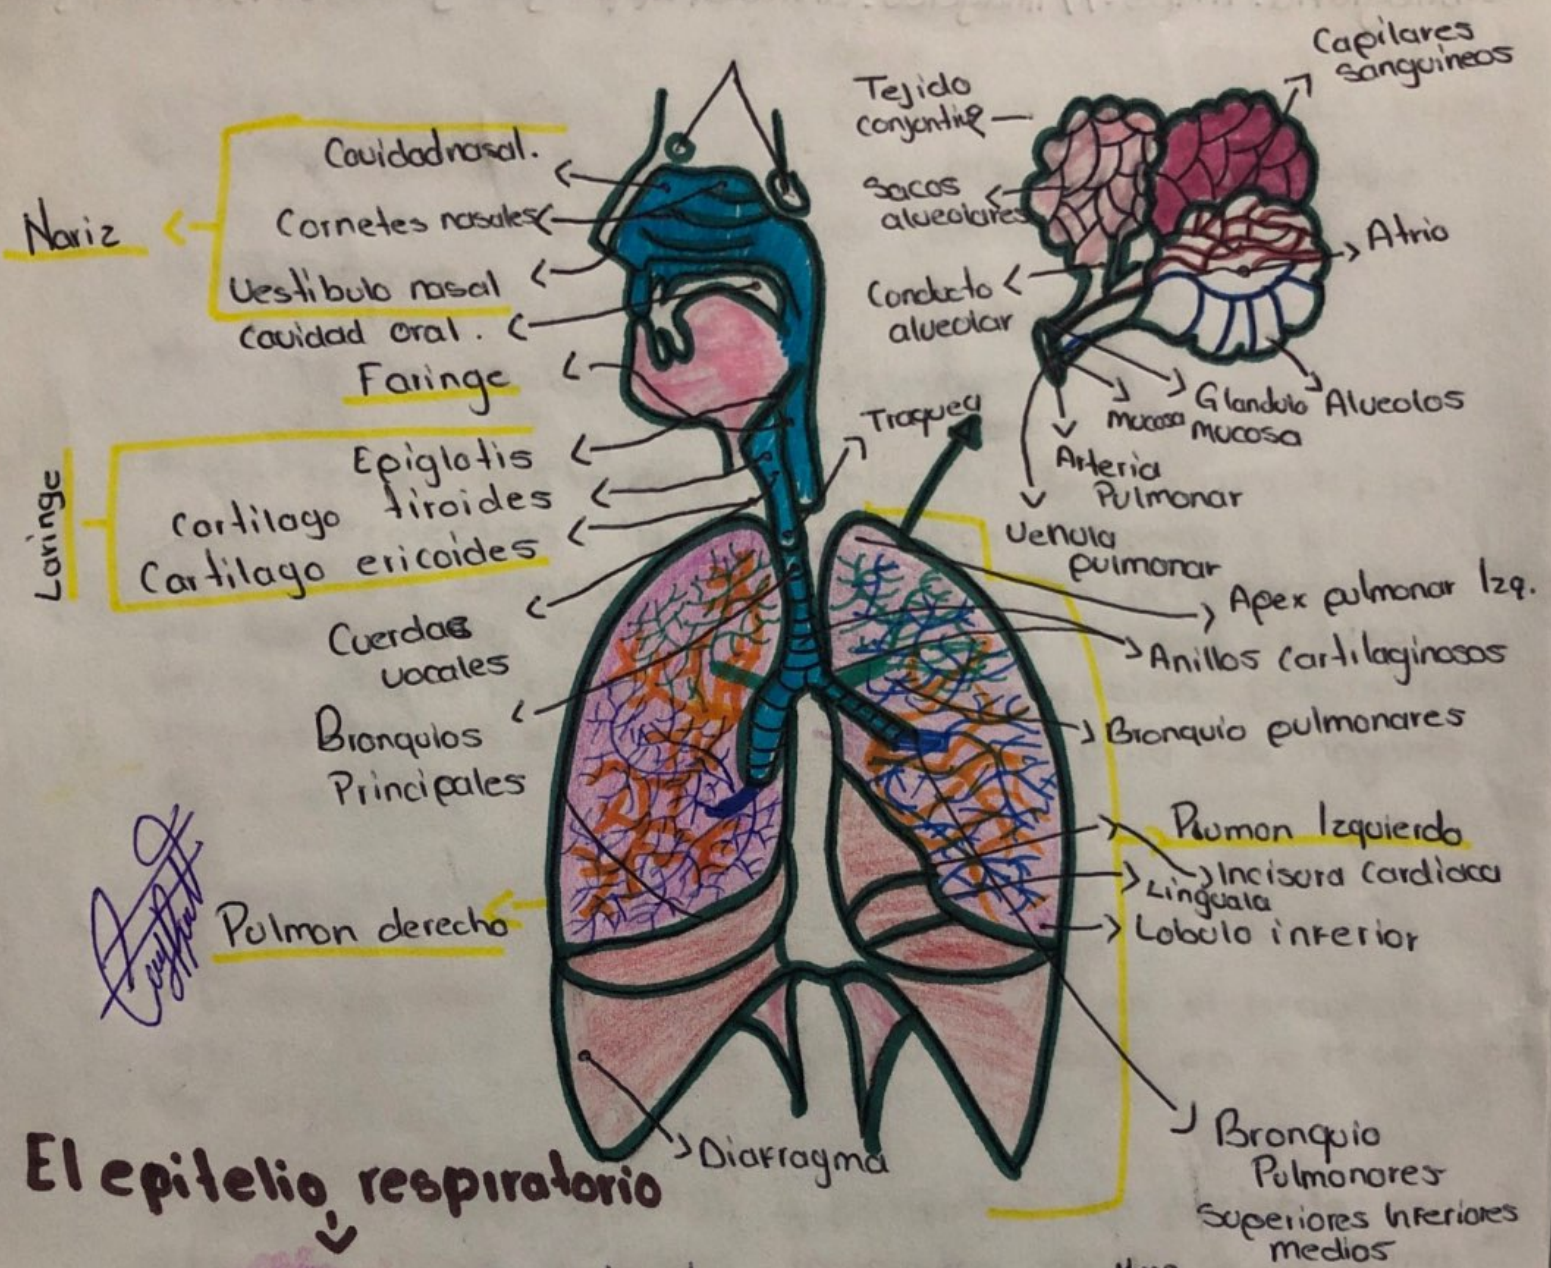 Cavidad nasal.
Cornetes nasales
Vestibulo nasal
Nariz
Cavidad oral.
Faringe
Laringe
Epiglotis
Cartilago tiroides
Cartilago ericoides
Cuerdas
vocales
Bronquios
Principales
Pulmon derecho
Diafragma
Tejido
conjontivo
Sacos
alveolares
Conducto
alveolar
Capilares
sanguineos
Atrio
Alveolos
Glandula
mucosa
mucosa
Arteria
Pulmonar
Venula
pulmonar
Traquea
Apex pulmonar Izq.
Anillos cartilaginosos
Bronquio pulmonares
Pulmon Izquierdo
Incisura cardiaca
Linguala
Lobulo inferior
Bronquio
Pulmonares
Superiores Inferiores
medios
El epitelio respiratorio